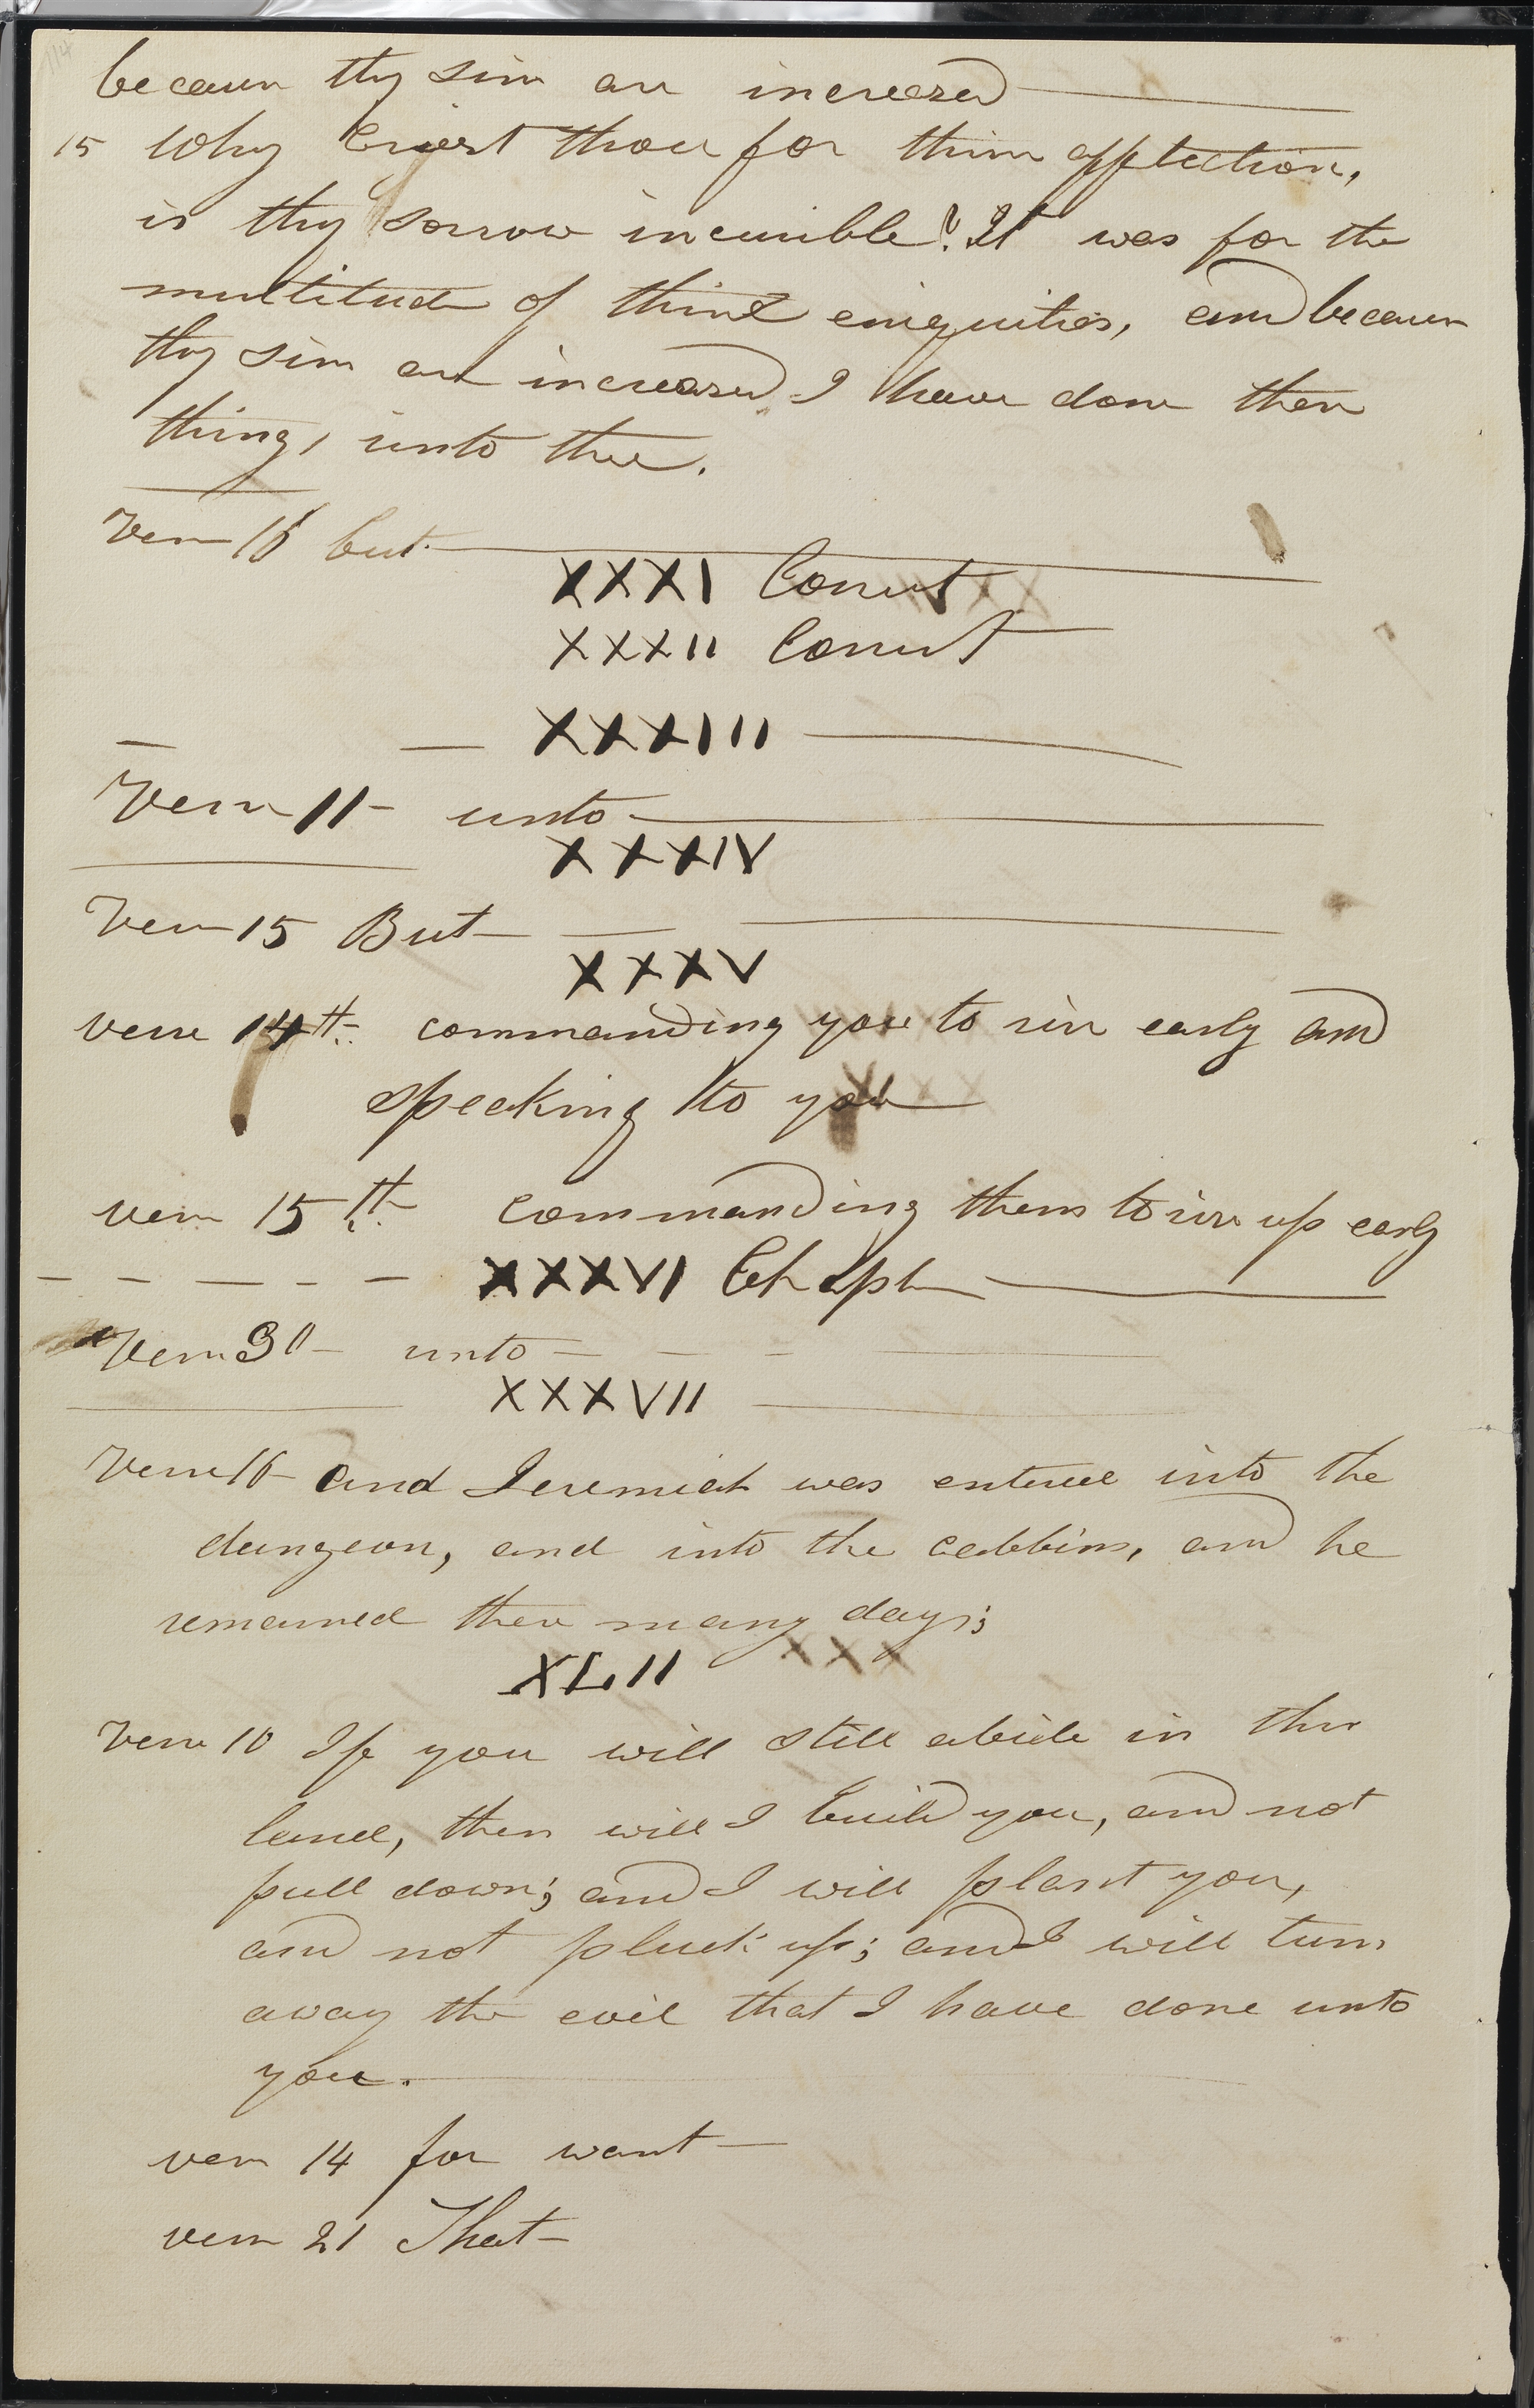 because thy sins are increased
15 Why Criest thou for thine affliction,
is thy sorrow incurible? It was for the
multitude of thine eniquities, and because
thy sins are increased I have done these
things unto thee.
Verse 16 but
XXXI Correct
XXXII Correct
XXXIII
Verse 11 unto
XXXIV
Verse 15 But
XXXV
verse 14th commanding you to rise early and
speaking to you
verse 15th Commanding them to rise up early
XXXVI Chapt
Verse 30 unto
XXXVII
Verse 16 and Jeremiah was entered into the
dungeon, and into the cabbins, and he
remained there many days;
XLII
Verse 10 If you will still abide in this
land, then will I build you, and not
pull down; and I will plant you,
and not pluck up; and I will turn
away the evil that I have done unto
you.
verse 14 for want
verse 21 That